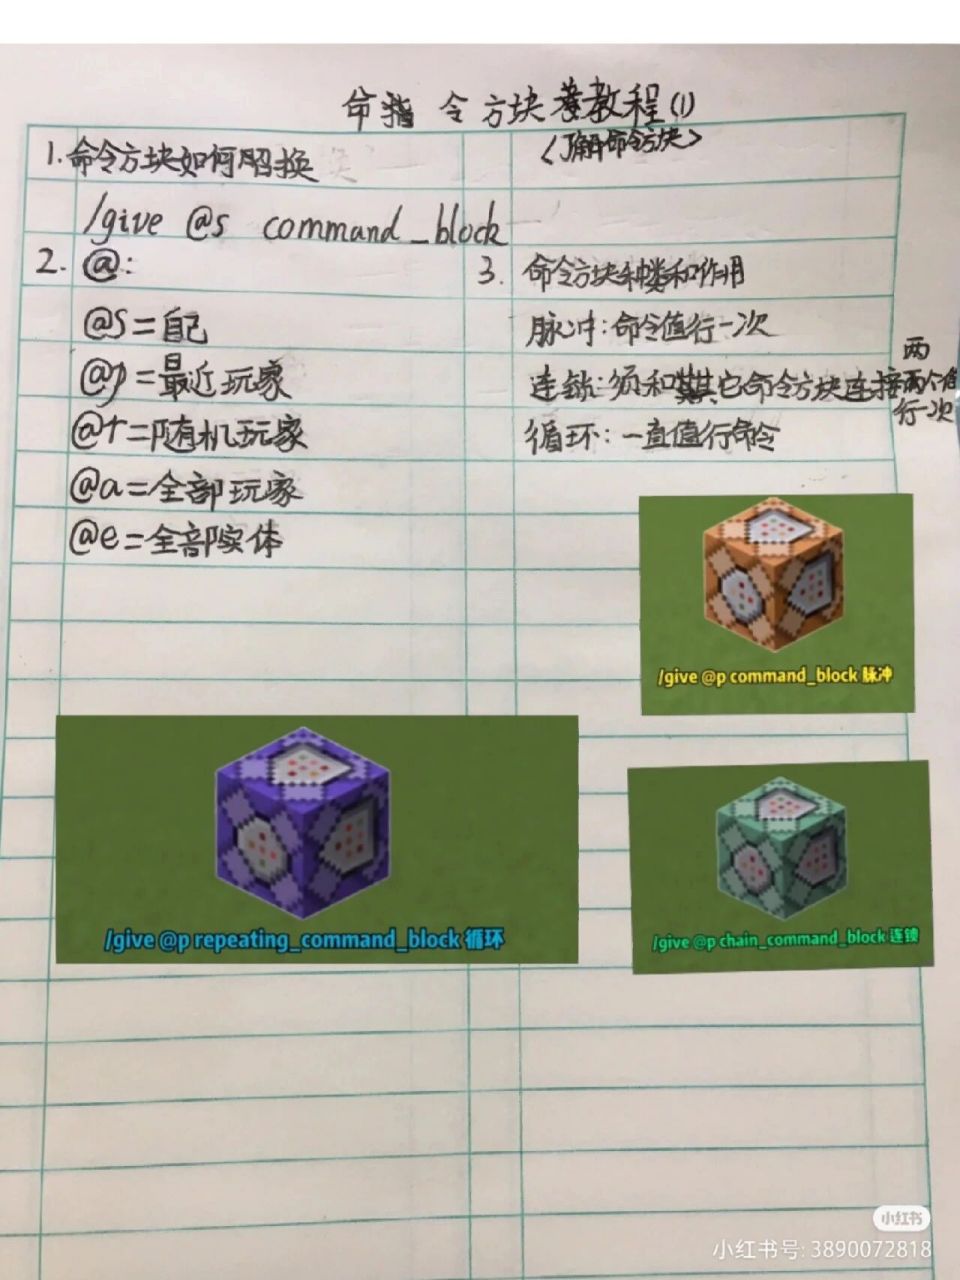 命令方块教程(1)
<了解命令方块>
1.命令方块如何召换
/give @s command_block
2. @:
@s=自己
@p=最近玩家
@r=随机玩家
@a=全部玩家
@e=全部实体
3. 命令方块种类和作用
脉冲:命令值行一次
连锁:须和其它命令方块连接两个值
两
行一次
循环:一直值行命令
/give @p command_block 脉冲
/give @p repeating_command_block 循环
/give @p chain_command_block 连锁
小红书
小红书号: 3890072818